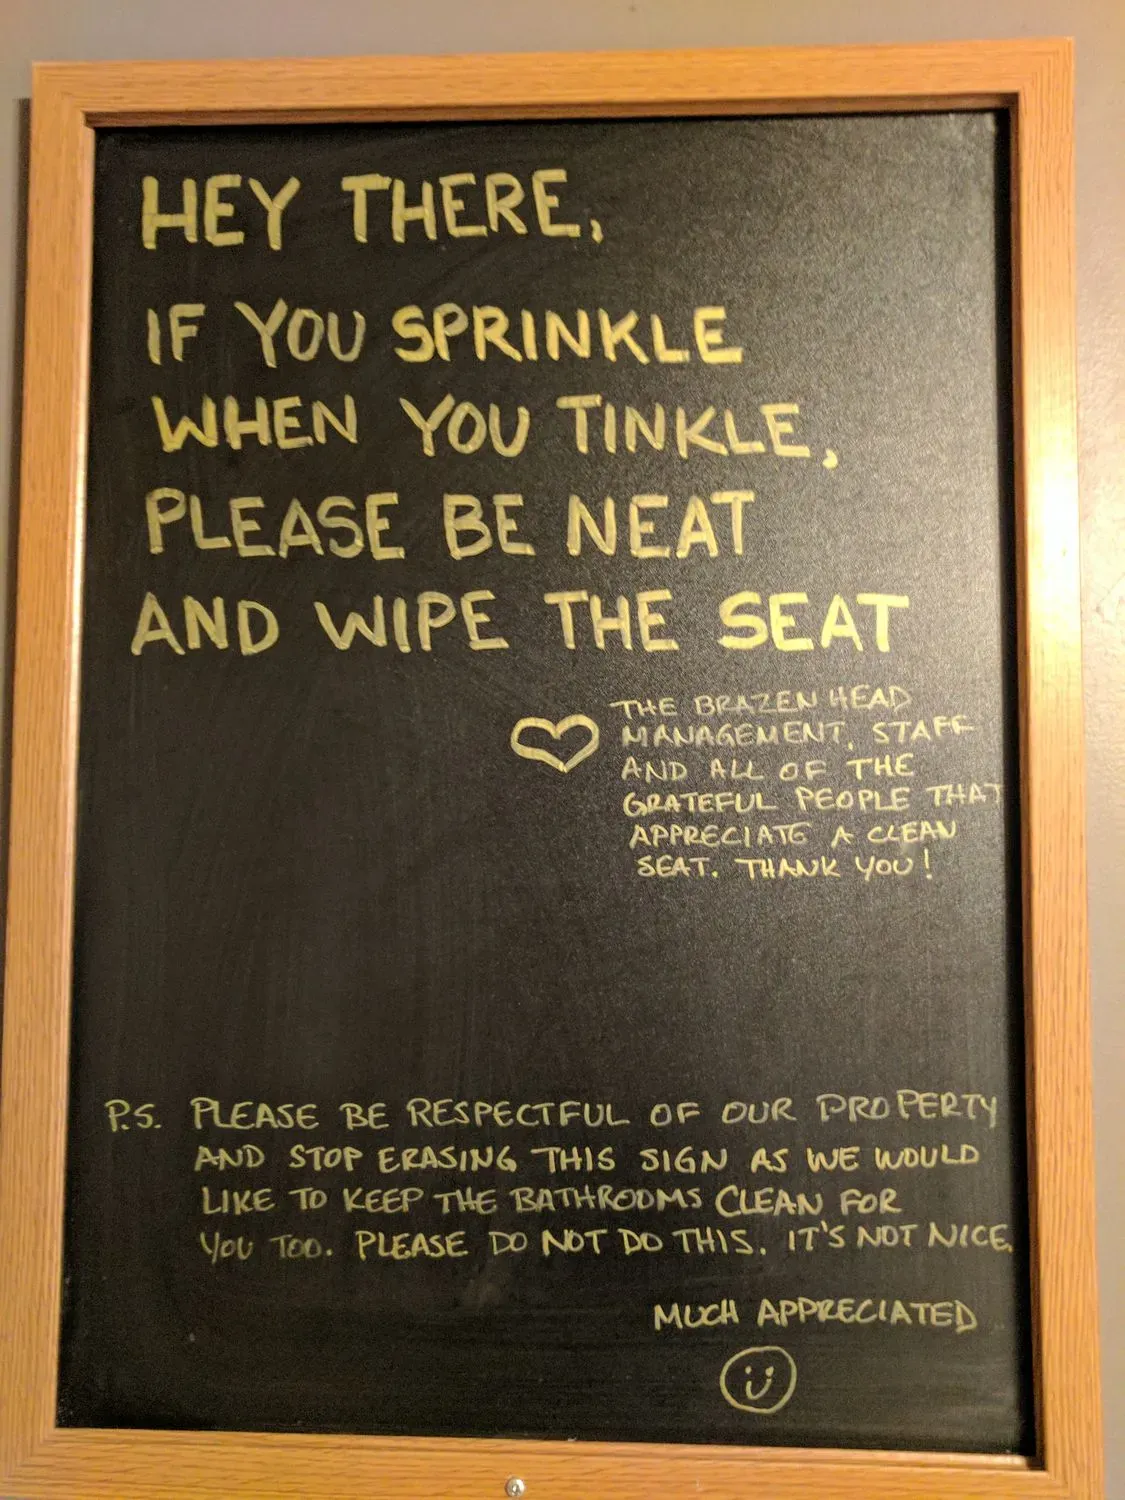 HEY THERE,
IF YOU SPRINKLE
WHEN YOU TINKLE,
PLEASE BE NEAT
AND WIPE THE SEAT
THE BRAZEN HEAD
MANAGEMENT, STAFF
AND ALL OF THE
GRATEFUL PEOPLE THAT
APPRECIATE A CLEAN
SEAT. THANK YOU!
P.S. PLEASE BE RESPECTFUL OF OUR PROPERTY
AND STOP ERASING THIS SIGN AS WE WOULD
LIKE TO KEEP THE BATHROOMS CLEAN FOR
YOU TOO. PLEASE DO NOT DO THIS. IT'S NOT NICE.
MUCH APPRECIATED